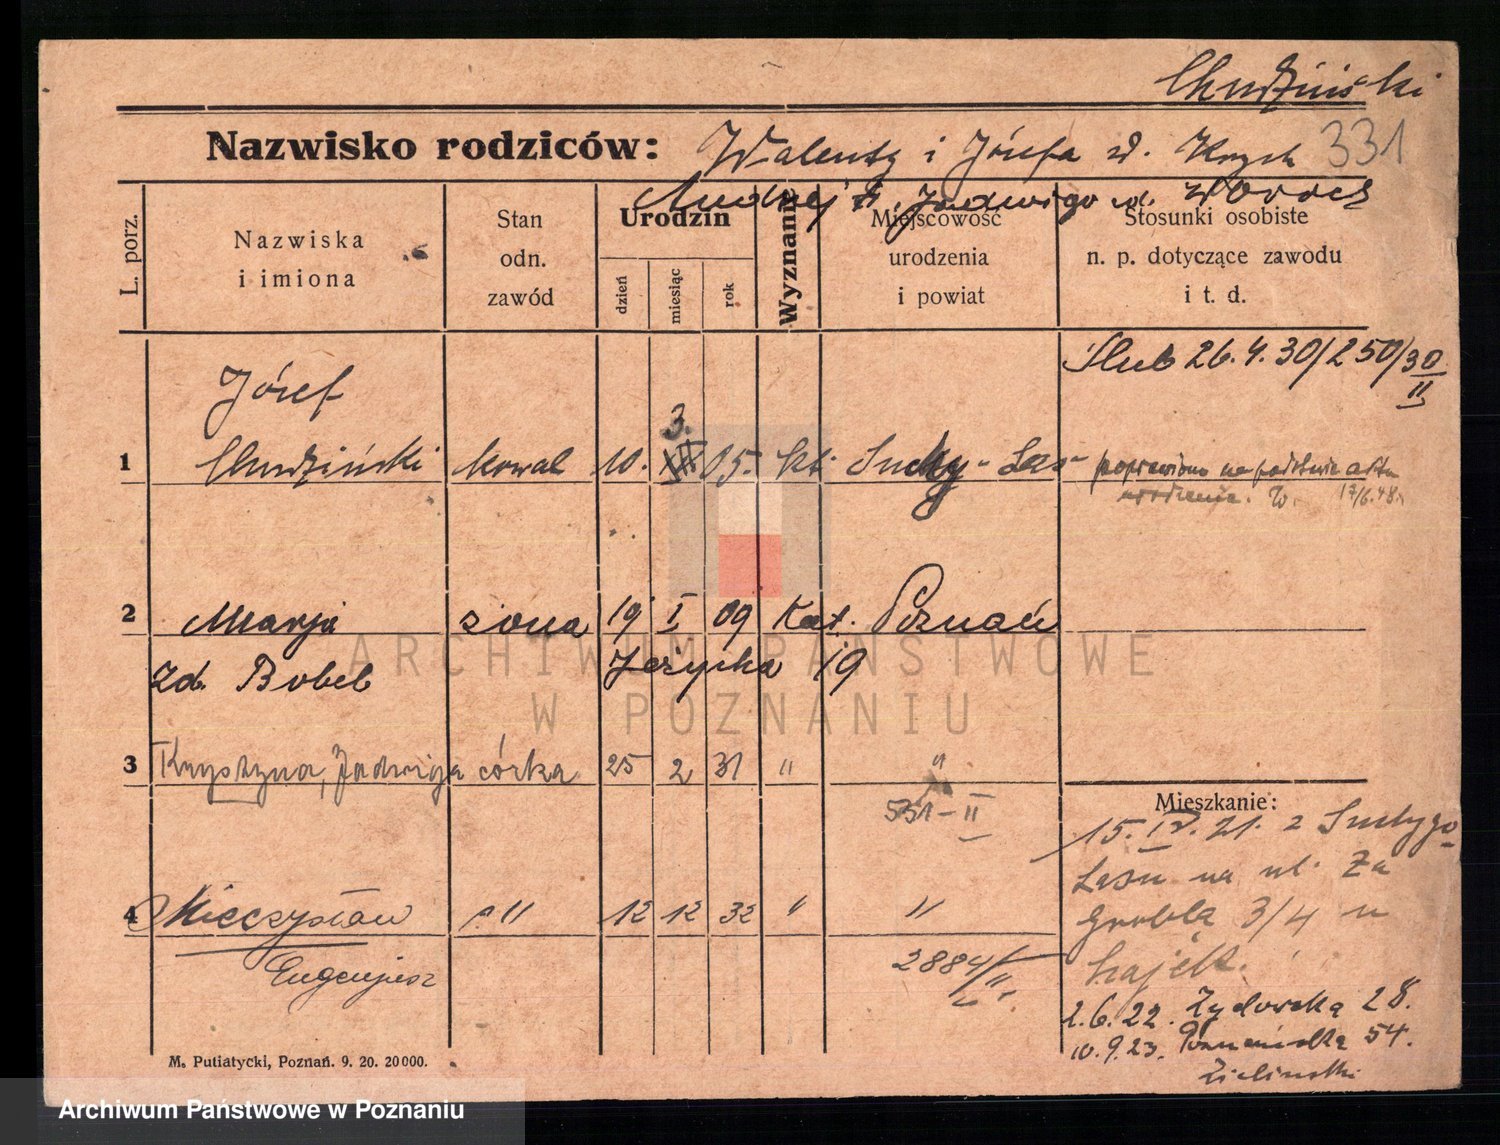 Chudziński
Nazwisko rodziców: Walenty i Józefa d. Krych 331
Andrzej i Jadwiga d.
L. porz.
Nazwiska
i imiona
Stan
odn.
zawód
Urodzin
dzień
miesiąc
rok
Wyznanie
Miejscowość
urodzenia
i powiat
Stosunki osobiste
n. p. dotyczące zawodu
i t. d.
Ślub 26.4.30/250/30
II
Józef
3.
1 Chudziński kowal 10. XII 05. kt. Suchy-Las poprawiono na podstawie aktu
urodzenia. 17/6.48.
2 Marja żona 19 I 09 Kat. Poznań
zd. Bobeb Jeżycka 19
3 Krystyna, Jadwiga córka 25 2 31 " "
531-II
Mieszkanie:
15. IV. 21. z Suchego-
Lasu na ul. Za
Groblą 3/4 u
4 Mieczysław s" 12 12 32 " "
Eugenjusz
2884/II
2.6.22. Żydowska 28.
10.9.23. Poznańska 54.
Zieliński
M. Putiatycki, Poznań. 9. 20. 20000.
ARCHIWUM PAŃSTWOWE
W POZNANIU
Archiwum Państwowe w Poznaniu